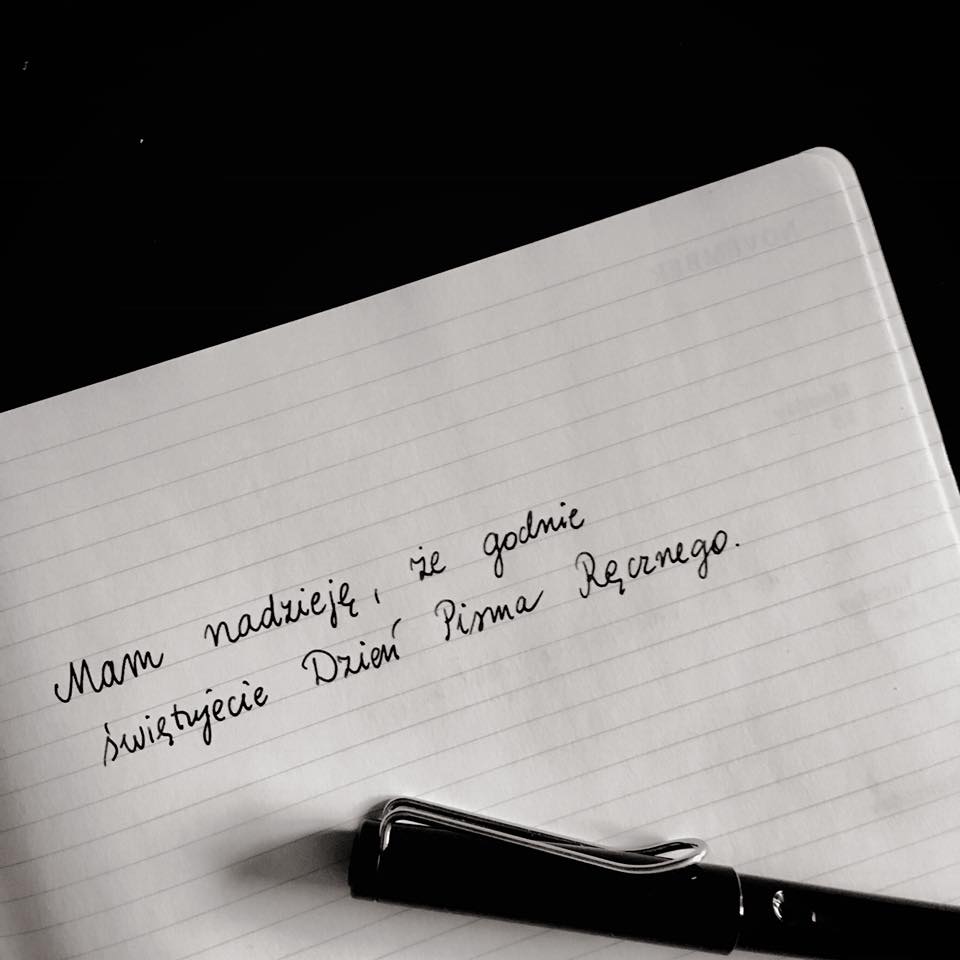 Mam nadzieję, że godnie
świętujecie Dzień Pisma Ręcznego.